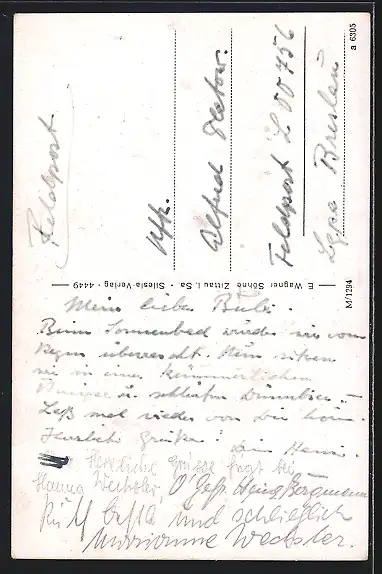 Feldpost
Uffz.
Alfred
Feldpost L 00756
Lgpa Breslau
a 6305
M/1294
E. Wagner Söhne Zittau i. Sa - Silesia-Verlag - 4449
Mein lieber Bubi.
Beim Sonnenbad wurden wir vom
Regen überrascht. Nun sitzen
wir in einer kümmerlichen
u. schlürfen Dünnbier.
Laß mal wieder von Dir hören.
Herzliche Grüße! Dein Heini.
Herzliche Grüsse fügt bei
Hanna Wechsler, O'Gefr. Heinz Bergmann
und schließlich
Marianne Wechsler.